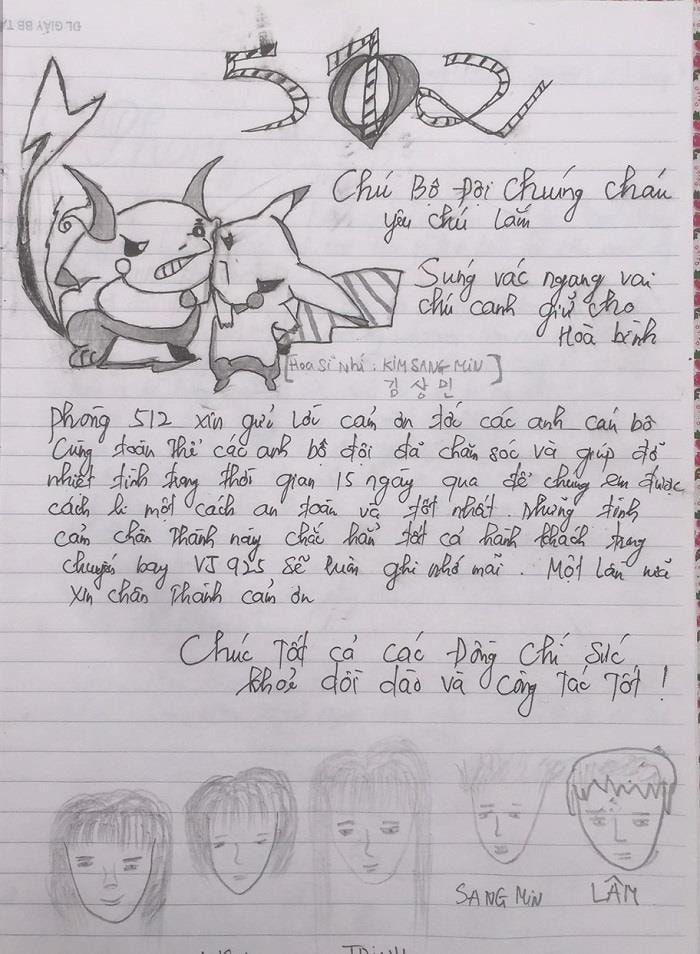 502
Chú Bộ Đội Chúng cháu
yêu chú lắm
Súng vác ngang vai
chú canh giữ cho
Hoà bình
[Hoạ Sĩ Nhí : KIM SANG MIN]
김 상 민
Phòng 512 xin gửi lời cảm ơn tới các anh cán bộ
Cùng toàn Thể các anh bộ đội đã chăm sóc và giúp đỡ
nhiệt tình trong thời gian 15 ngày qua để chúng em được
cách li một cách an toàn và tốt nhất. Những tình
cảm chân Thành này chắc hẳn tất cả hành khách trong
chuyến bay VJ 925 sẽ luôn ghi nhớ mãi . Một lần nữa
Xin chân Thành cảm ơn
Chúc Tất cả các Đồng Chí Sức
khoẻ dồi dào và Công Tác Tốt !
SANG MIN LÂM